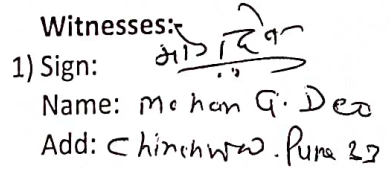 Witnesses:-
1) Sign:
Name: Mohan G. Deo
Add: Chinchwad. Pune 33